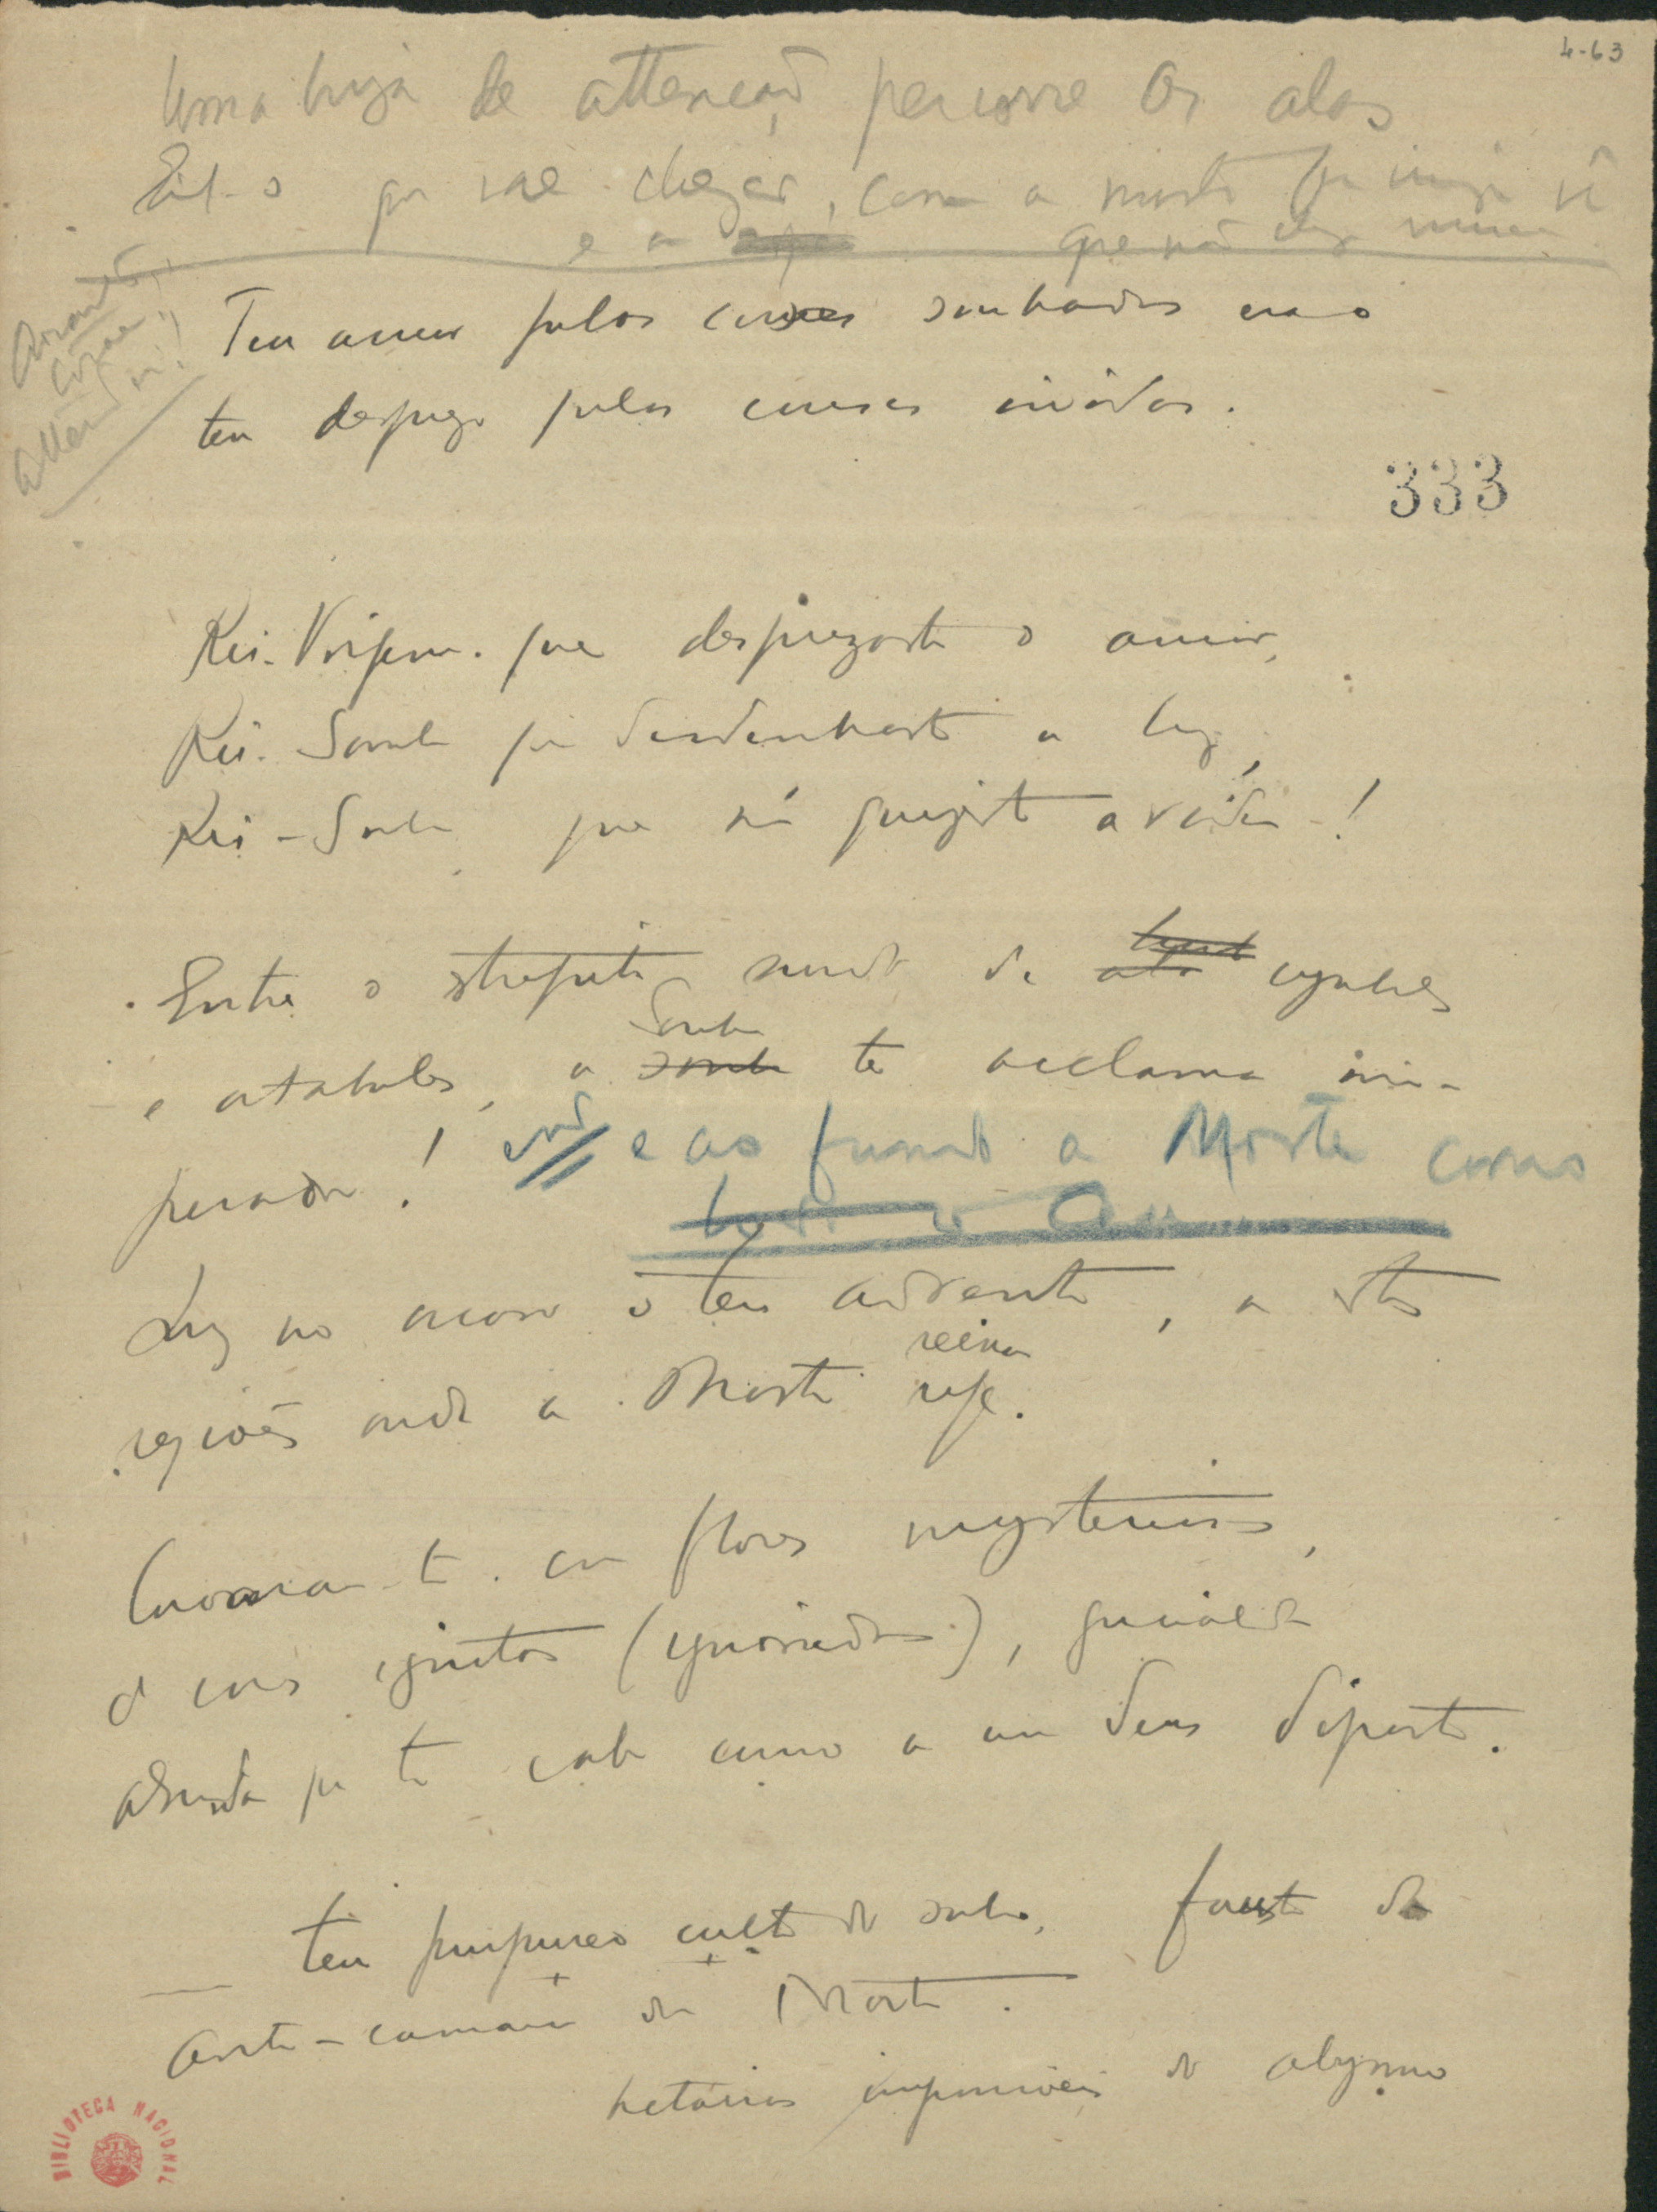 4-63
Uma briza de attenção percorre as alas
Eil-o que vae chegar, com a morte que ninguem vê
e a que não chega nunca
Teu amor pelas cousas sonhadas era o
teu desprezo pelas cousas vividas.
333
Rei-Virgem que desprezaste o amor,
Rei-Sombra que desdenhaste a luz,
Rei-Sonho que não quizeste a vida!
Entre o estrepito surdo de cymbalos
e atabales, a Sombra te acclama im-
perador! e ao fundo a Morte
o teu advento, a estas
regiões onde a Morte rege.
reina
Coroaram-te com flores mysteriosas,
de cores ignotas (ignoradas), grinalda
absurda que te cabe como a um deus deposto.
teu purpureo culto do sonho, fausto da
Ante-camara da Morte.
hetairas impossiveis do abysmo
BIBLIOTECA NACIONAL